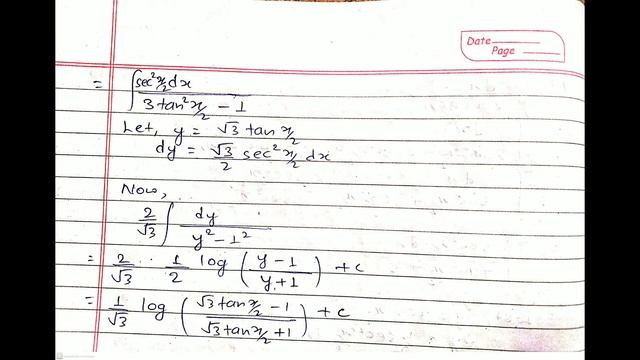 Date
Page
= ∫ sec²x/2 dx / (3 tan²x/2 - 1)
Let, y = √3 tan x/2
dy = √3/2 sec²x/2 dx
Now,
2/√3 ∫ dy / (y² - 1²)
= 2/√3 · 1/2 log ( (y - 1) / (y + 1) ) + c
= 1/√3 log ( (√3 tan x/2 - 1) / (√3 tan x/2 + 1) ) + c